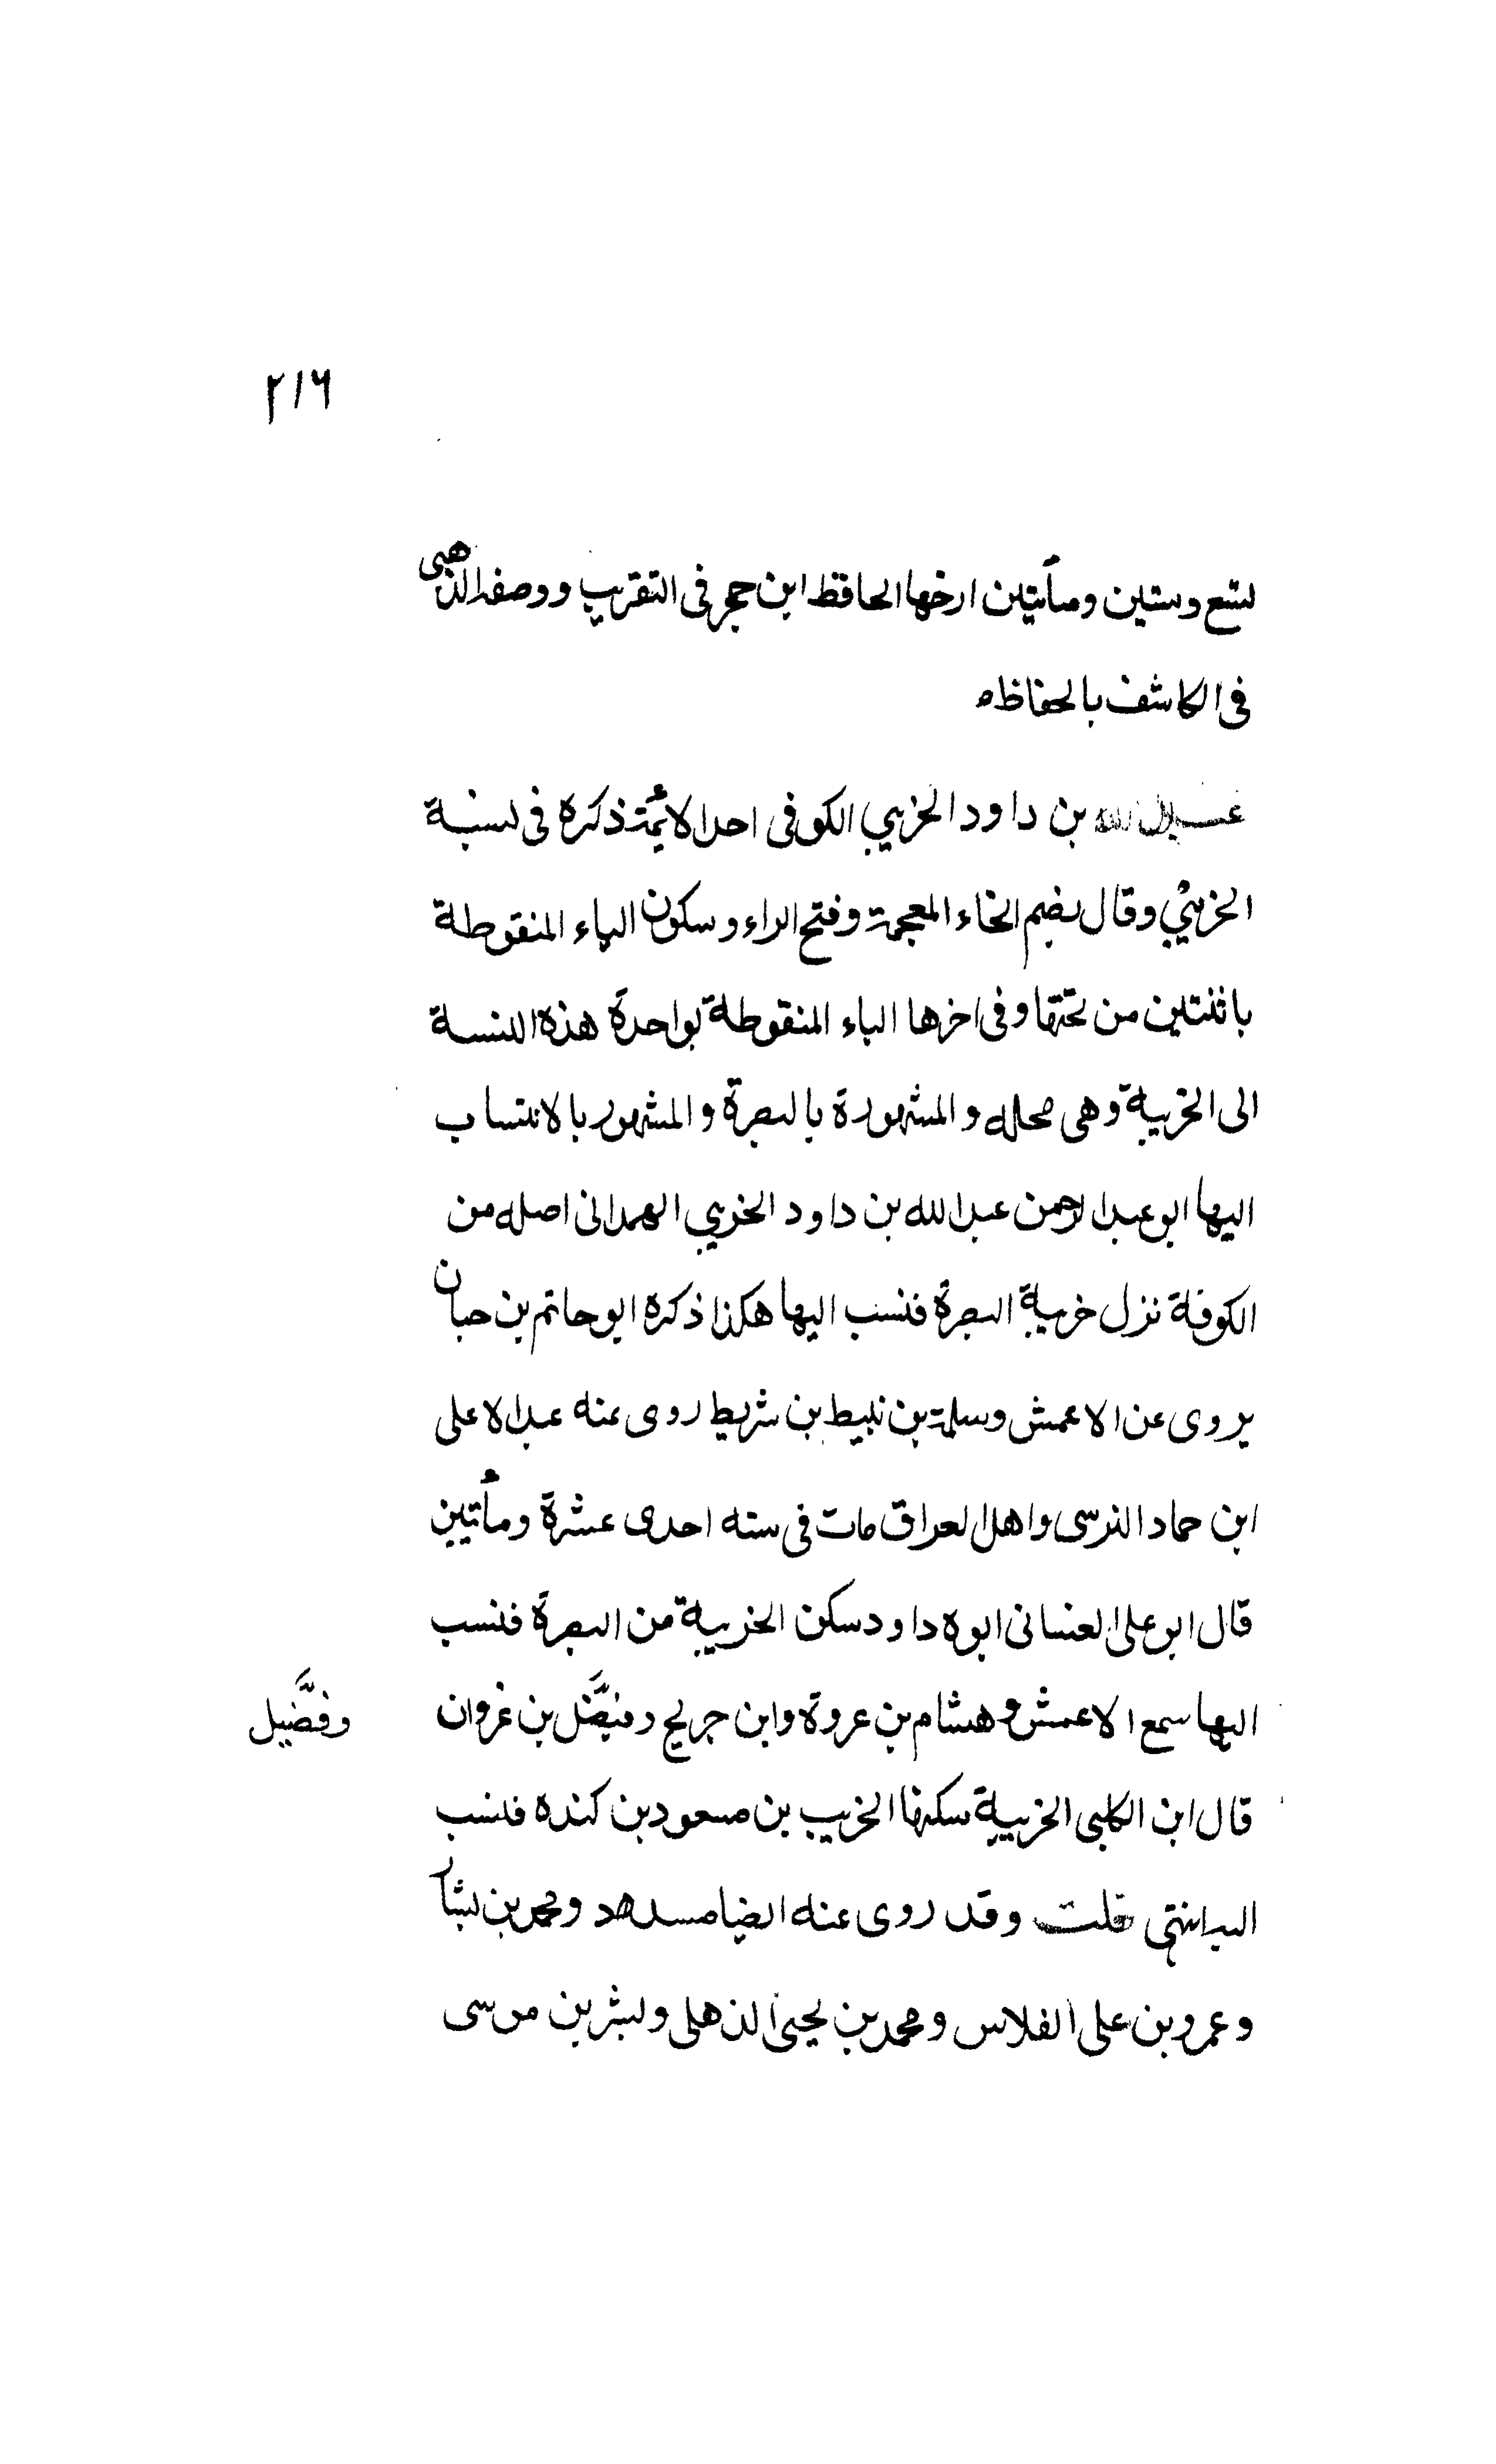 ٢١٦
لتسع وستين ومأتين ارخها الحافظ ابن حجر فى التقريب ووصفه الذهبى
فى الكاشف بالحفاظه
عبد الله بن داود الخريبي الكوفى احد الائمة ذكره فى نسبة
الخريبي وقال بضم الخاء المعجمة وفتح الراء وسكون الياء المنقوطة
باثنتين من تحتها وفى اخرها الباء المنقوطة بواحدة هذه النسبة
الى الخريبة وهى محله والمشهورة بالبصرة والمشهور بالانتساب
اليها ابو عبد الرحمن عبد الله بن داود الخريبي الهمدانى اصله من
الكوفة نزل خريبة البصرة فنسب اليها هكذا ذكره ابو حاتم بن حبان
يروى عن الاعمش وسلمة بن نبيط بن شريط روى عنه عبد الاعلى
ابن حماد النرسى واهل العراق مات فى سنه احدى عشرة ومأتين
قال ابو على الغسانى ابوه داود سكن الخريبة من البصرة فنسب
اليها سمع الاعمش وهشام بن عروة وابن جريج وفضّل بن غزوان
وفضّيل
قال ابن الكلبى الخريبة سكنها الخريب بن مسعود بن كنده فنسب
اليه انتهى قلت وقد روى عنه ايضا مسدد ومحمد بن بشار
وعمرو بن على الفلاس ومحمد بن يحيى الذهلى وبشر بن موسى